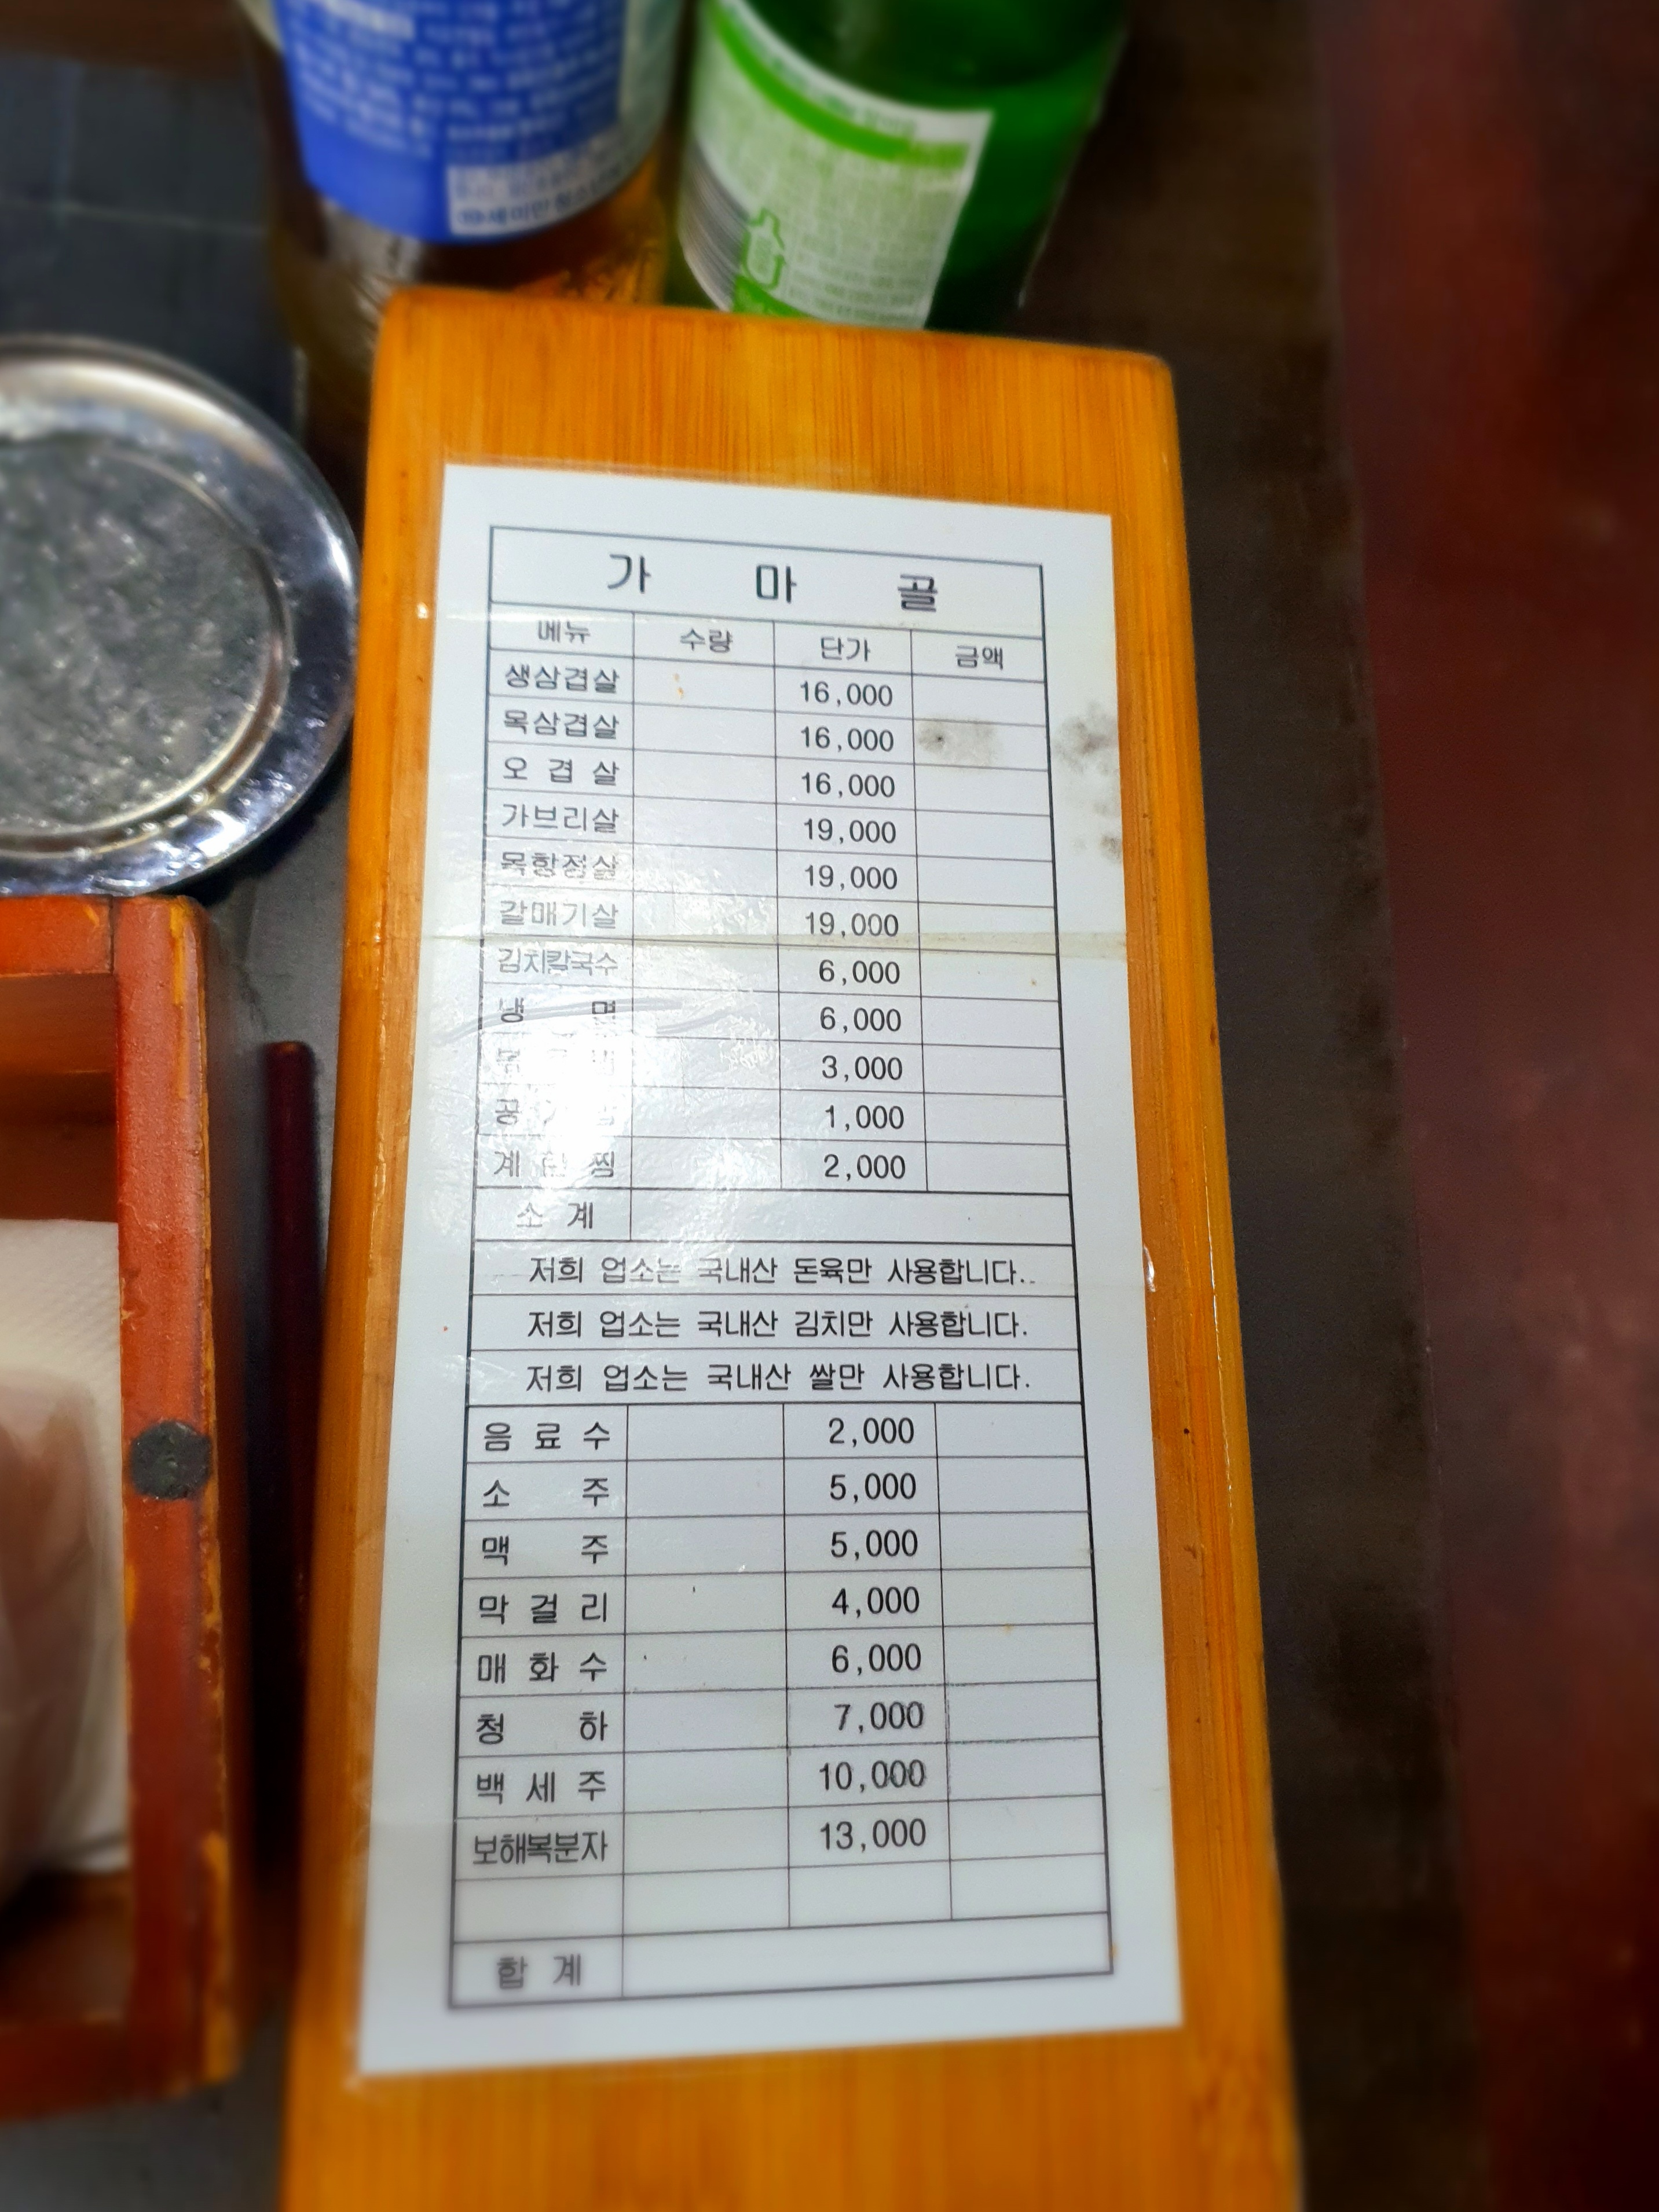 가 마 골
메뉴 수량 단가 금액
생삼겹살 16,000
목삼겹살 16,000
오 겹 살 16,000
가브리살 19,000
목항정살 19,000
갈매기살 19,000
김치칼국수 6,000
냉 면 6,000
3,000
1,000
계 란 찜 2,000
소 계
저희 업소는 국내산 돈육만 사용합니다.
저희 업소는 국내산 김치만 사용합니다.
저희 업소는 국내산 쌀만 사용합니다.
음 료 수 2,000
소 주 5,000
맥 주 5,000
막 걸 리 4,000
매 화 수 6,000
청 하 7,000
백 세 주 10,000
보해복분자 13,000
합 계